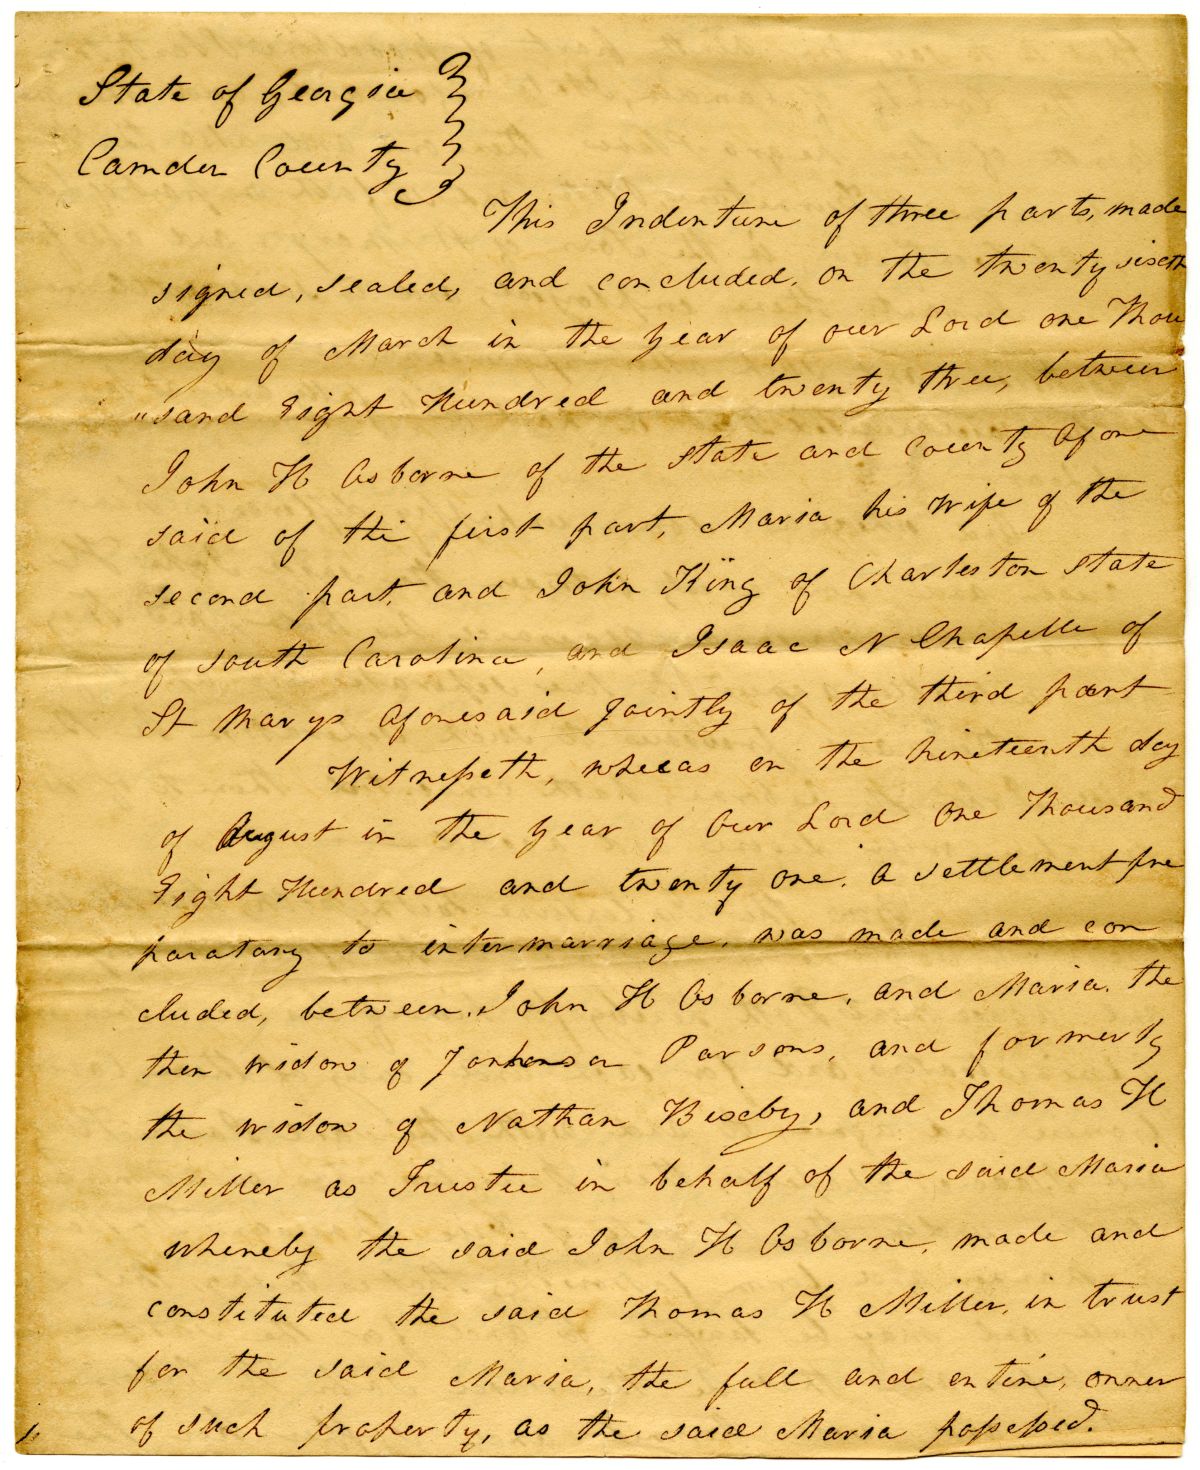 State of Georgia
Camden County
This Indenture of three parts, made
signed, sealed, and concluded, on the twenty sixth
day of March in the year of our Lord one Thou
"sand Eight Hundred and twenty three, between
John H Osborne of the State and County Afore
said of the first part, Maria his wife of the
second part, and John King of Charleston State
of South Carolina, and Isaac N Chapelle of
St Marys Aforesaid jointly of the third part
Witnesseth, wheras on the nineteenth day
of August in the year of Our Lord One Thousand
Eight Hundred and twenty one, a settlement pre
paratory to intermarriage, was made and con
cluded, between, John H Osborne, and Maria, the
then widow of Parsons, and formerly
the widow of Nathan Bixby, and Thomas H
Miller as Trustee in behalf of the said Maria
whereby the said John H Osborne, made and
constituted the said Thomas H Miller, in trust
for the said Maria, the full and entire, owner
of such property, as the said Maria possessed.